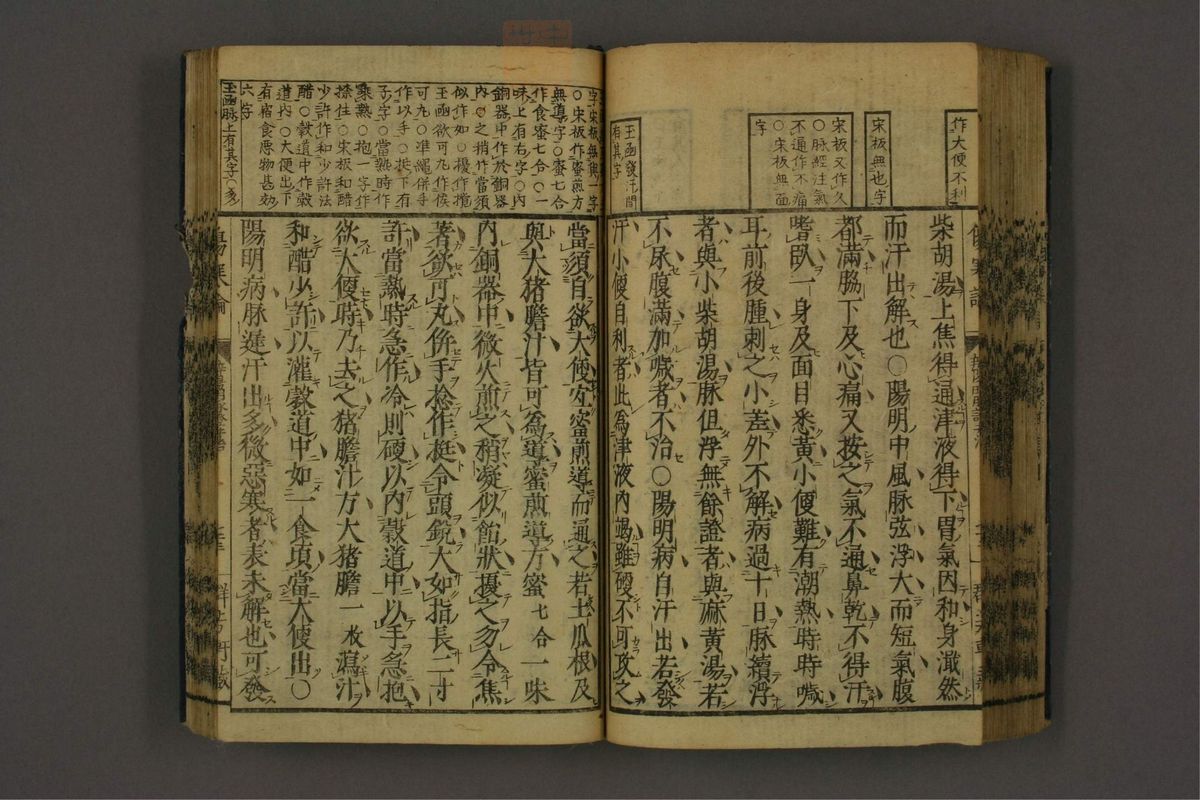 作大便不利
宋板無也字
宋板又作久
○脉經注氣
不通作不痛
○宋板無面
字
玉函發汗間
有其字
柴胡湯上焦得通津液得下胃氣因和身濈然
而汗出解也○陽明中風脉弦浮大而短氣腹
都滿脇下及心痛又按之氣不通鼻乾不得汗
嗜臥一身及面目悉黄小便難有潮熱時時噦
耳前後腫刺之小差外不解病過十日脉續浮
者與小柴胡湯脉但浮無餘證者與麻黄湯若
不尿腹滿加噦者不治○陽明病自汗出若發
汗小便自利者此為津液內竭雖硬不可攻之
字宋板無與一字
○宋板作蜜煎方
無導字○蜜七合
作食蜜七合○一
味上有右字○內
銅器中作於銅器
內○之稍作當須
似作如○擾作攪
玉函欲可丸作俟
可丸○準繩併手
作以手○挺下有
子字○當熱時作
乘熱○抱一字作
捺住○宋板和醋
少許作和少許法
醋○穀道中作穀
道內○大便出下
有宿食惡物甚効
六字
玉函脉上有其字○多
當須自欲大便宜蜜煎導而通之若土瓜根及
與大猪膽汁皆可為導蜜煎導方蜜七合一味
內銅器中微火煎之稍凝似飴狀擾之勿令焦
著欲可丸併手捻作挺令頭銳大如指長二寸
許當熱時急作冷則硬以內穀道中以手急抱
欲大便時乃去之猪膽汁方大猪膽一枚瀉汁
和醋少許以灌穀道中如一食頃當大便出○
陽明病脉遲汗出多微惡寒者表未解也可發